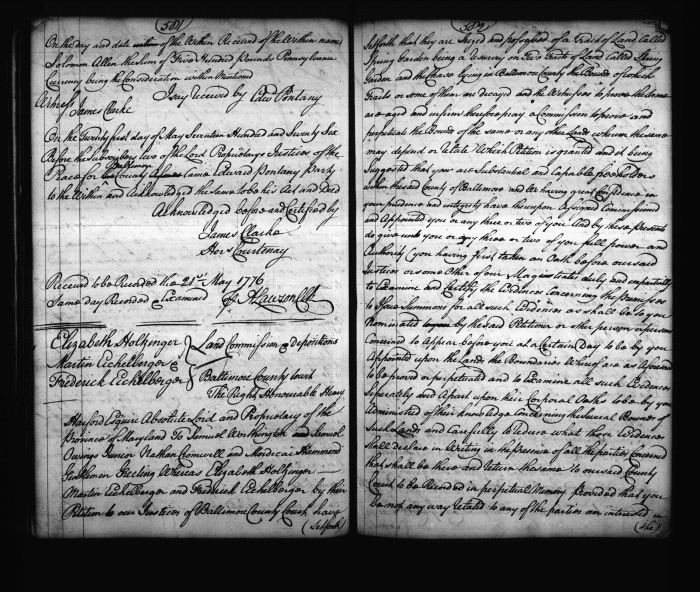 581
On the day and date within of the Within Received of the Within named
Solomon Allen the Sum of Two Hundred Pounds Pennsylvania
Currency being the Consideration within Mentioned
Witness I say received by Edwd Pontany
James Clarke
On the Twenty first day of May Seventeen Hundred and Seventy Six
Before the Subscribers two of the Lord Proprietarys Justices of the
Peace for the County Came Edward Pontany Party
to the Within and Acknowledged the same to be his Act and Deed
Acknowledged before and Certified by
James Clarke
Hers Courtenay
Received to be Recorded the 21st May 1776
Same day Recorded & Examined Lawson Clk
Elizabeth Holtzinger
Martin Eichelberger &
Frederick Eichelberger
Land Commission & depositions
Baltimore County Court
The Right Honourable Henry
Harford Esquire Absolute Lord and Proprietary of the
Province of Maryland To Samuel Worthington Samuel
Owings Junior Nathan Cromwell and Mordecai Hammond
Gentlemen Greeting Whereas Elizabeth Holtzinger
Martin Eichelberger and Frederick Eichelberger by their
Petition to our Justices of Baltimore County Court have
(Setforth)
582
Setforth that they are Seized and possessed of a Tract of Land Called
Spring Garden being a resurvey on Two Tracts of Land Called Spring
Garden and the lying in Baltimore County the Bounds of which
Tracts or some of them are decayed and the Witnesses to prove the same
are aged and infirm therefore pray a Commission to prove and
perpetuate the Bounds of the same or any other Lands whereon the same
may depend or relate Which Petition is granted and it being
Suggested that you are Substantial and Capable freeholders
within the said County of Baltimore and We having great Confidence in
your prudence and integrity have thereupon Assigned Commissioned
and Appointed you or any three or two of you And by these Presents
do give unto you or any three or two of you full power and
Authority (you having first taken an Oath before our said
Justices or some Other of our Magistrates duly and impartially
to Examine and Certify the Evidences Concerning the Premisses
to Issue Summons for all such Evidences as shall be to you
Nominated by the said Petitioner or other person or persons
Concerned to Appear before you at a Certain Day to be by you
Appointed upon the Lands the Boundaries Whereof are as Aforesaid
to be proved or perpetuated and to Examine all such Evidences
Separately and Apart upon their Corporal Oaths to be by you
Administred of their knowledge Concerning the several Bounds of
Such Lands and Carefully to reduce what those Evidences
shall declare in Writing in the presence of all the parties Concerned
that shall be there and return the same to our said County
Court to be Recorded in perpetual Memory Provided that you
be not any way related to any of the parties nor interested in
(the)